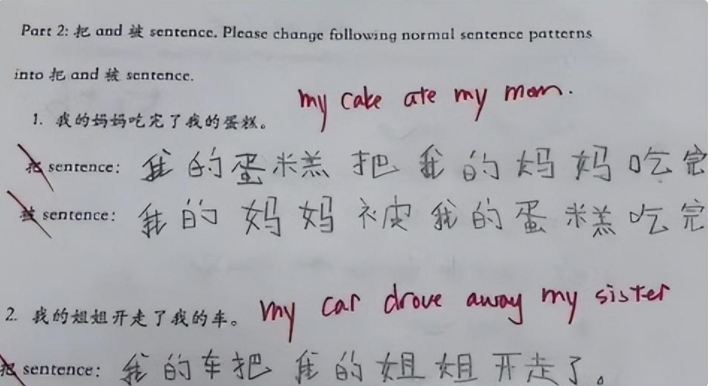 Part 2: 把 and 被 sentence. Please change following normal sentence patterns
into 把 and 被 sentence.
my cake ate my mom.
1. 我的妈妈吃完了我的蛋糕。
把 sentence: 我的蛋糕把我的妈妈吃完
被 sentence: 我的妈妈被我的蛋糕吃完
my car drove away my sister
2. 我的姐姐开走了我的车。
把 sentence: 我的车把我的姐姐开走了。